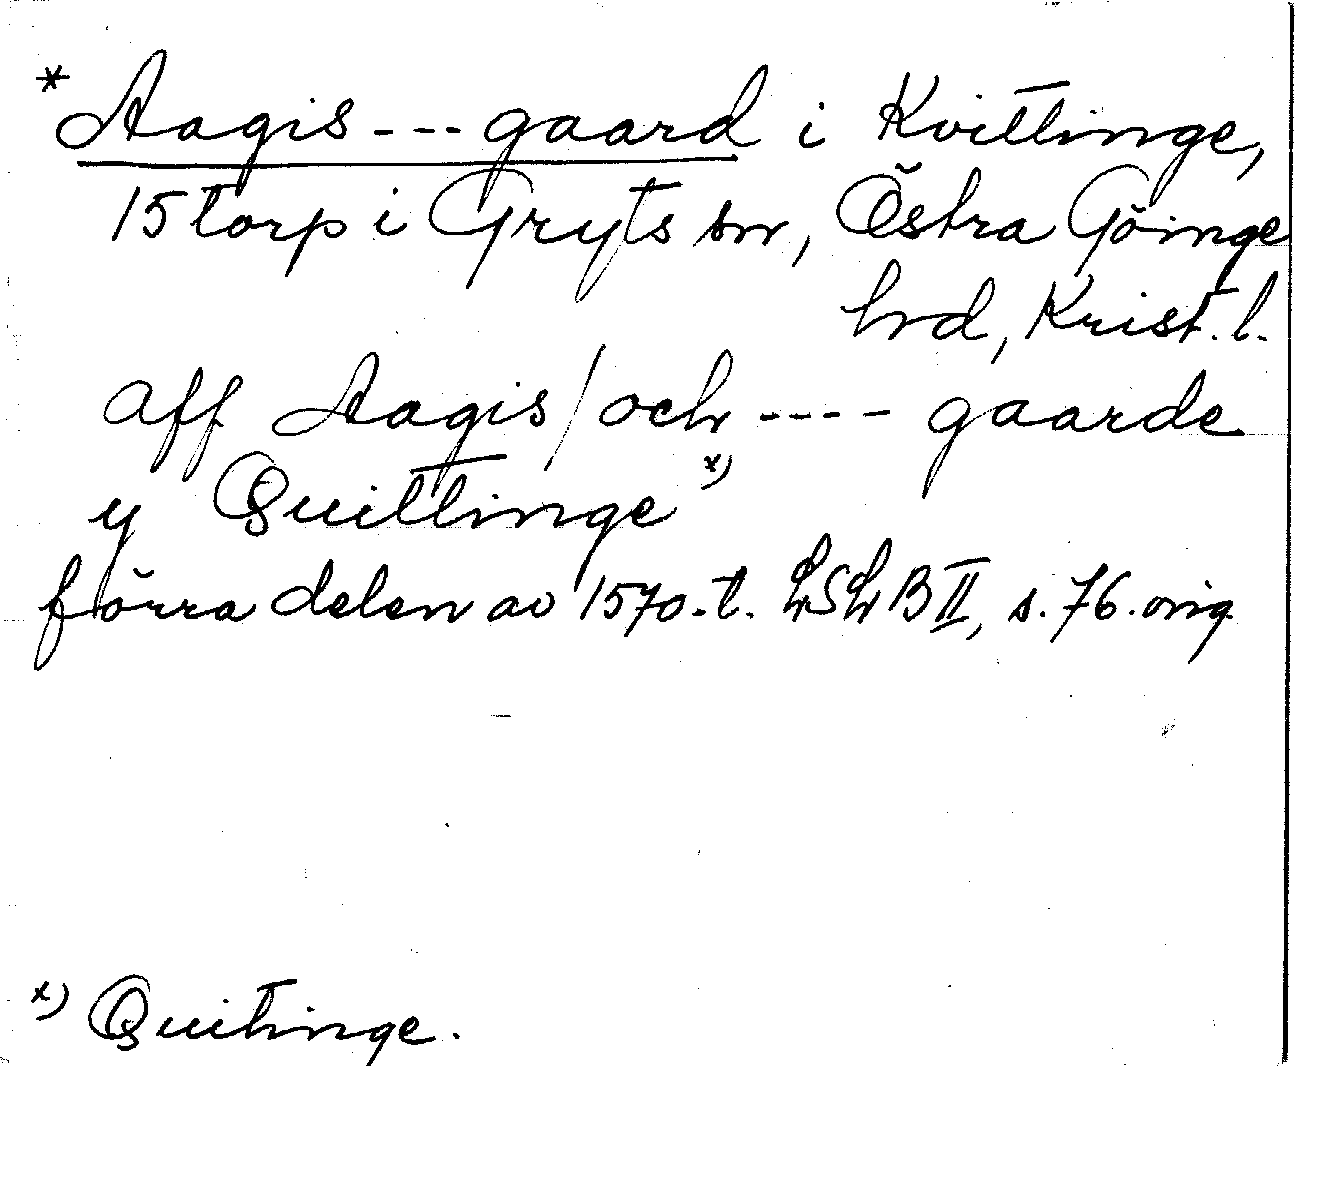 *Aagis---gaard i Kvittinge,
15 torp i Gryts sn, Östra Göinge
hd, Krist. l.
aff Aagis/och ---- gaarde
y Quittinge x)
förra delen av 1570-t. LSLB II, s. 76. orig.
x) Quitinge.